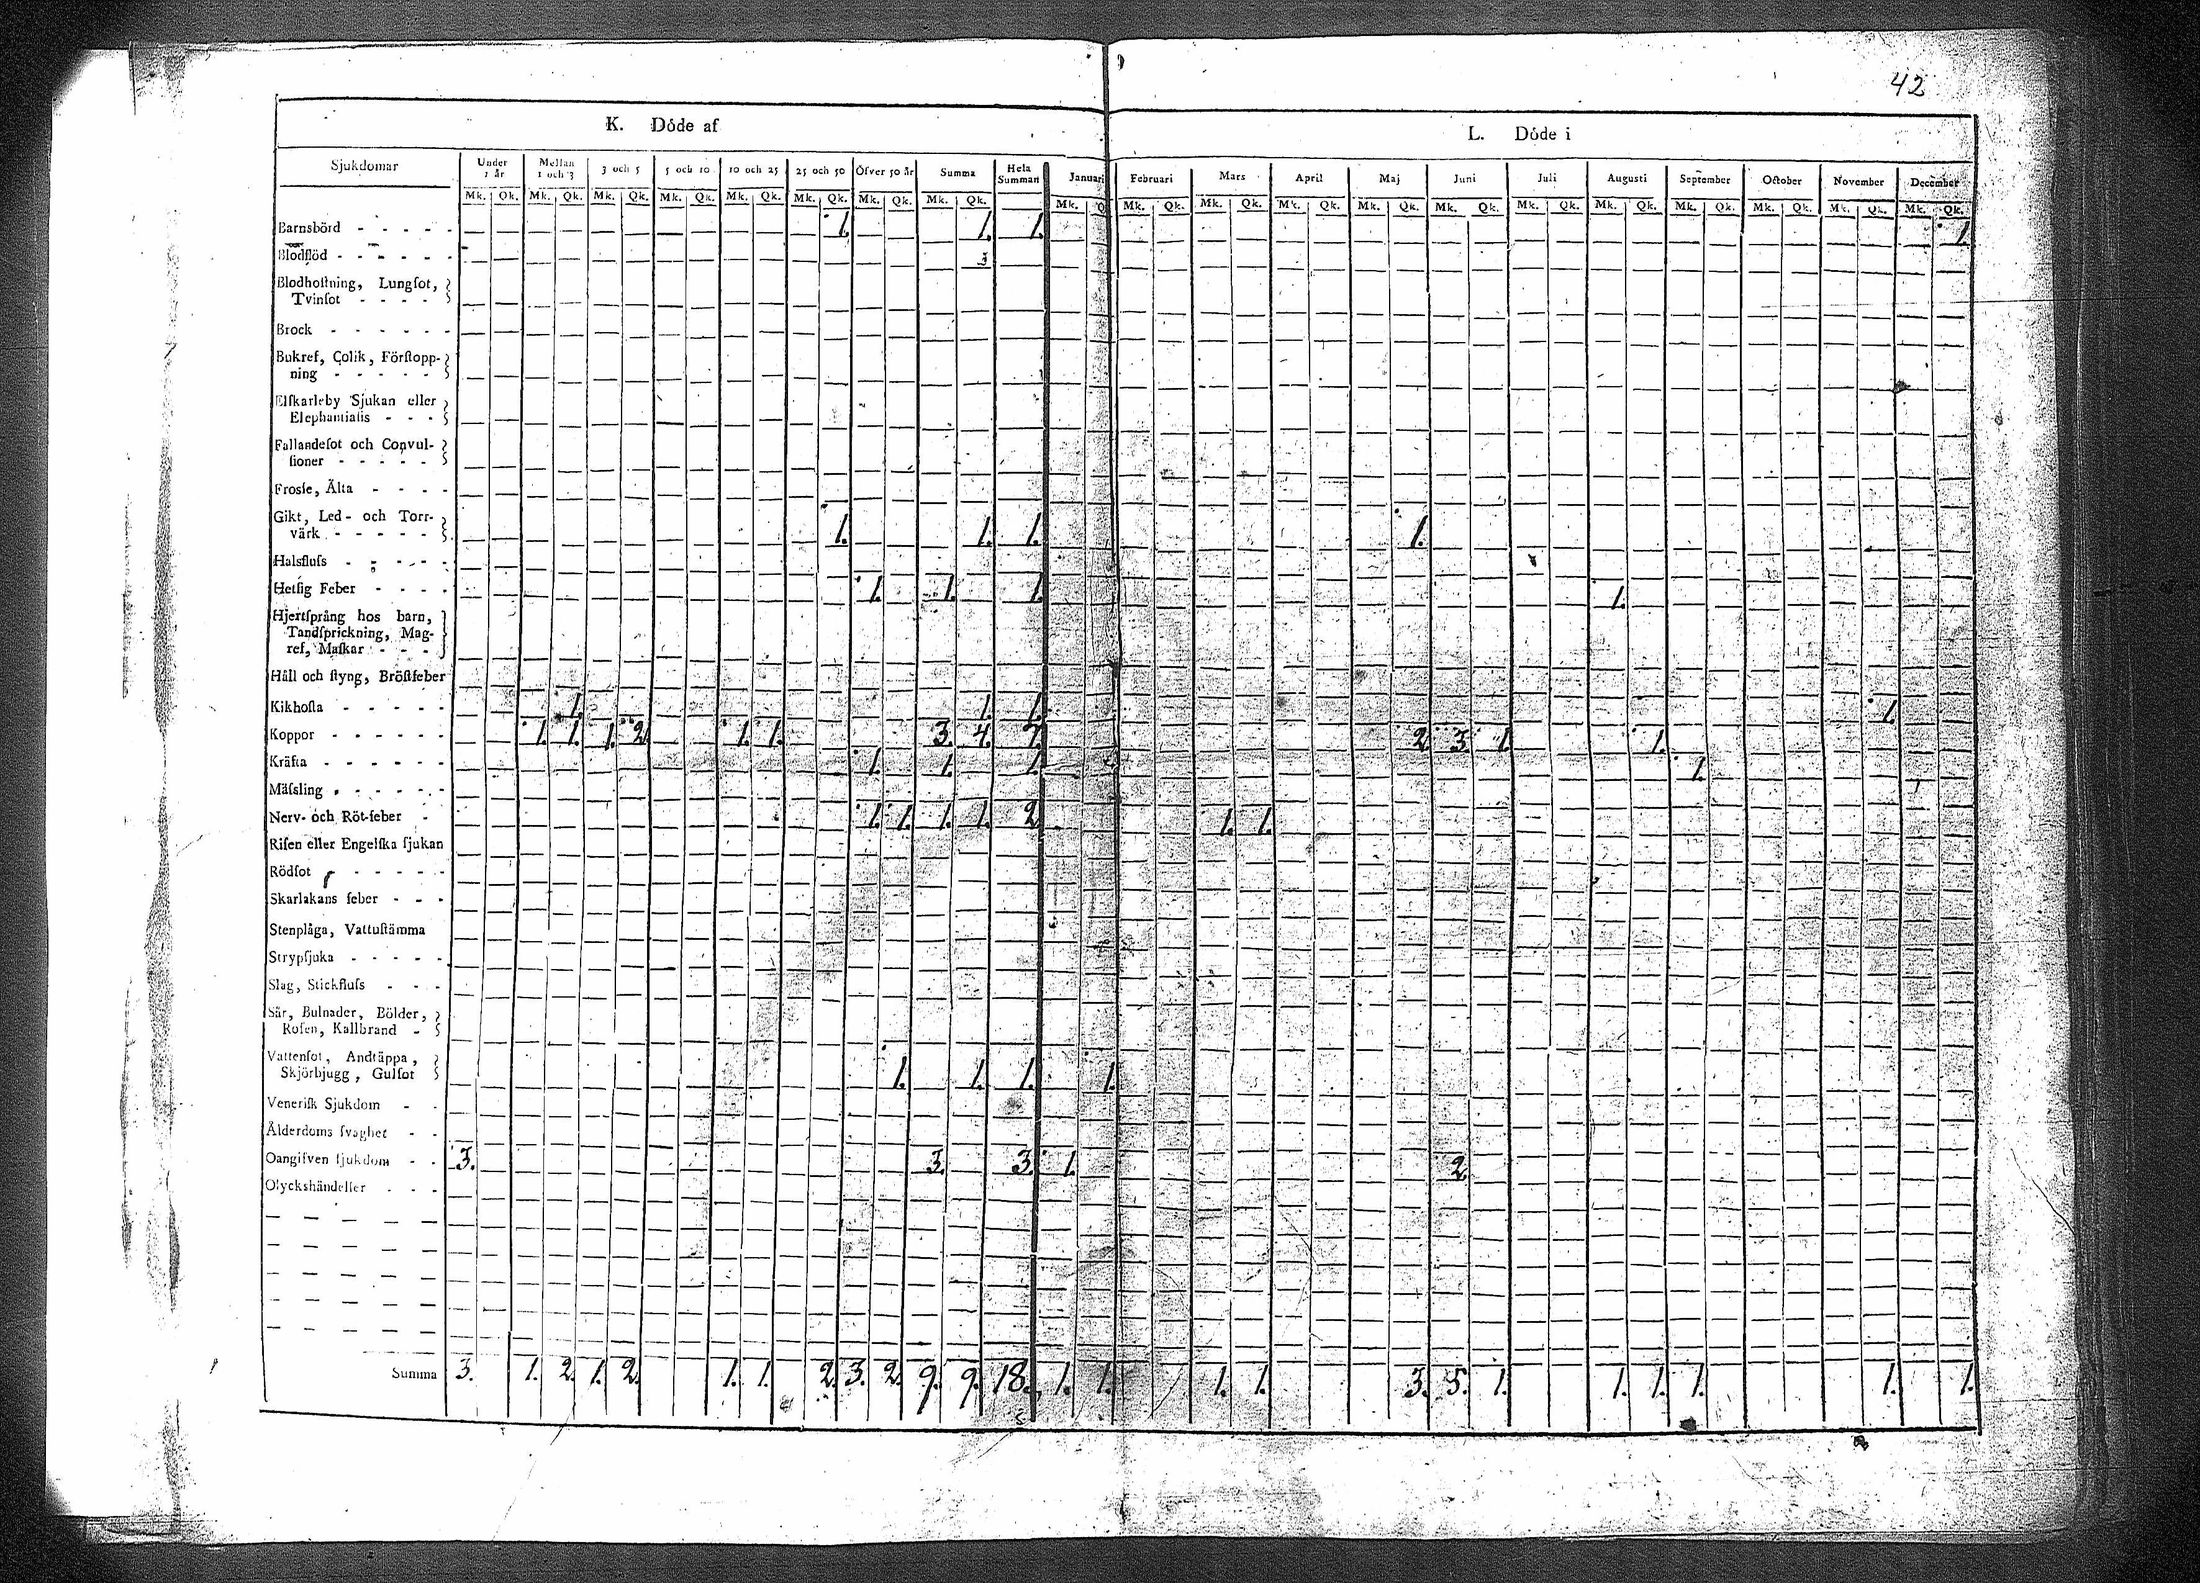 42
K. Döde af
L. Döde i
Sjukdomar Under 1 år Mellan 1 och 3 3 och 5 5 och 10 10 och 25 25 och 50 Öfver 50 år Summa Hela Summan Januari Februari Mars April Maj Juni Juli Augusti September October November December
Mk. Qk. Mk. Qk. Mk. Qk. Mk. Qk. Mk. Qk. Mk. Qk. Mk. Qk. Mk. Qk. Mk. Q Mk. Qk. Mk. Qk. Mk. Qk. Mk. Qk. Mk. Qk. Mk. Qk. Mk. Qk. Mk. Qk. Mk. Qk. Mk. Qk. Mk. Qk.
Barnsbörd - - - - - 1. 1. 1. 1.
Blodflöd - - - - - -
Blodhoſtning, Lungſot,
Tvinſot - - - -
Brock - - - - - -
Bukref, Colik, Förſtopp-
ning - - - - -
Elſkarleby Sjukan eller
Elephantiaſis - - -
Fallandeſot och Convul-
ſioner - - - - -
Frosſe, Älta - - - -
Gikt, Led- och Torr-
värk - - - - - 1. 1. 1. 1.
Halsfluſs - - - - -
Hetſig Feber - - - - 1. 1. 1. 1.
Hjertſprång hos barn,
Tandſprickning, Mag-
ref, Maſkar - - -
Håll och ſtyng, Bröſtfeber
Kikhoſta - - - - - 1. 1. 1. 1.
Koppor - - - - - - 1. 1. 1. 2. 1. 1. 3. 4. 7. 2. 3. 1. 1.
Kräfta - - - - - - 1. 1. 1. 1.
Mäſsling - - - - - -
Nerv- och Röt-feber - 1. 1. 1. 1. 2. 1. 1.
Riſen eller Engelſka ſjukan
Rödſot - - - - -
Skarlakans feber - - -
Stenplåga, Vattuſtämma
Strypſjuka - - - - -
Slag, Stickfluſs - - -
Sår, Bulnader, Bölder,
Roſen, Kallbrand -
Vattenſot, Andtäppa,
Skjörbjugg, Gulſot 1. 1. 1. 1.
Veneriſk Sjukdom - -
Ålderdoms ſvaghet - -
Oangifven ſjukdom - - 3. 3. 3. 1. 2.
Olyckshändelſer - - -
Summa 3. 1. 2. 1. 2. 1. 1. 2. 3. 2. 9. 9. 18. 1. 1. 1. 1. 3. 5. 1. 1. 1. 1. 1. 1.